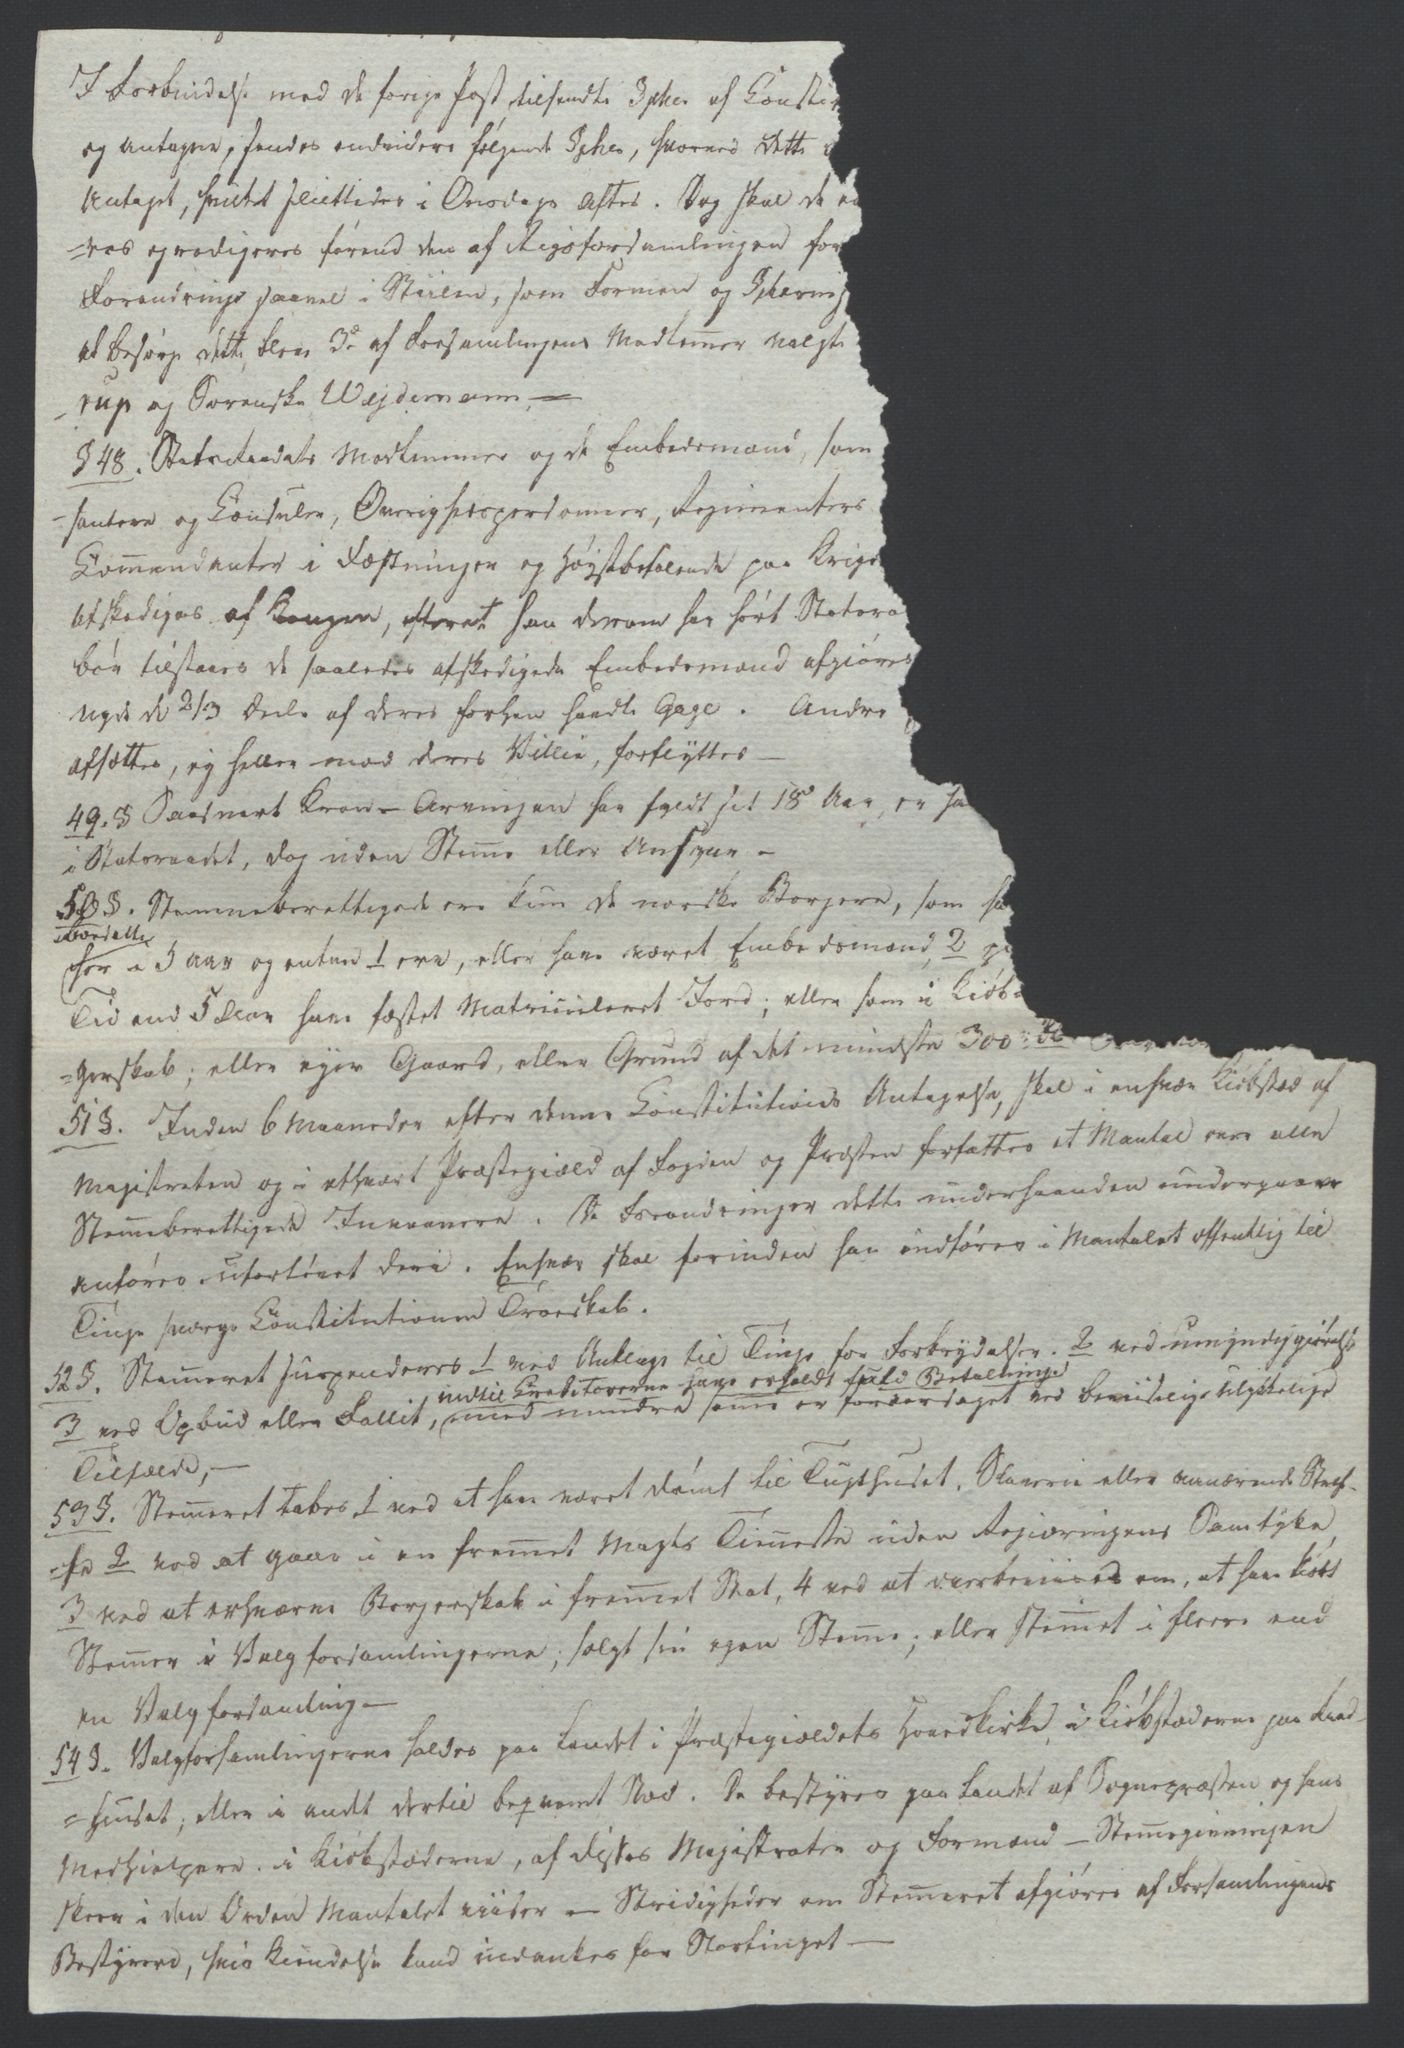 I Forbindelse med de forige Post tilsendte §pher af Consti
og antagne, sendes endvidere følgende §pher, hvorved dette
antaget, hvilket sluttedes i Onsdags Aftes. Dog skal de
=res og redigeres førend den af Rigsforsamlingen for
Forandring saavel i Stiilen, som Formen og §phering
at besørge dette, blev 3de af Forsamlingens Medlemmer valgte
-rup og Sorenskr. Weydemann —
§ 48. Statsraadets Medlemmer og de Embedsmænd, som
-santere og Consuler, Øvrighedspersonner, Regimenters
Commendanter i Fæstninger og Høystbefalende paa Krigs
afskediges af Kongen, efterat han derom har hørt Statsra
bør tilstaaes de saaledes afskedigede Embedsmænd afgiøres
nyde de 2/3 Deele af deres forhen havdte Gage. Andre
afsættes, ej heller mod deres Villie, forflyttes —
49. § Saasnart Kron-Arvingen har fyldt sit 18de Aar, er ha
i Statsraadet, dog uden Stemme eller Ansvar —
50 §. Stemmeberettigede ere kun de norske Borgere, som ha
bosatte
her i 5 Aar og enten 1 ere, eller have været Embedsmænd, 2 p
Tid end 5 Aar have fæstet Matriculeret Jord; eller som i Kiøb
=gerskab; eller eyer Gaard, eller Grund af det mindste 300
51 §. Inden 6 Maaneder efter denne Constitutions Antagelse, skal i enhver Kiøbstæd af
Magistraten og i ethvert Præstegield af Fogden og Præsten forfattes et Mantal over alle
Stemmeberettigede Innvaanere. De Forandringer dette underhaanden undergaaer
anføres ufortøvet deri. Enhver skal forinden han indføres i Mantalet offentlig til
Tinge sværge Constitutionen Troeskab.
52 §. Stemmeret suspenderes 1 ved Anklage til Tinge for Forbrydelser. 2 ved umyndiggiørelse
indtil Creditorerne have erholdt fuld Betalning
3 ved Opbud eller Fallit, med mindre samme er foraarsaget ved beviislige ulykkelige
Tilfælde, —
53 §. Stemmeret tabes 1 ved at have været dømt til Tugthuset, Slaverie eller vanærende Straf-
-fe 2 ved at gaae i en fremmet Magts Tieneste uden Regieringens Samtykke
3 ved at erhverve Borgerskab i fremmet Stat, 4 ved at overbeviises om, at have kiøbt
Stemmer i Valgforsamlingerne; solgt sin egen Stemme; eller stemmet i fleere end
en Valgforsamling —
54 §. Valgforsamlingerne holdes paa Landet i Præstegieldets Hovedkirke, i Kiøbstæderne paa Raad-
=huset; eller i andt dertil beqvemt Sted. De bestyres paa Landet af Sognepræsten og hans
Medhielpere. i Kiøbstæderne, af disses Magistrater og Formænd — Stemmegivningen
skeer i den Orden Mantalet viiser — Stridigheder om Stemmeret afgiøres af Forsamlingens
Bestyrere, hvis Kiendelse kand indankes for Stortinget —